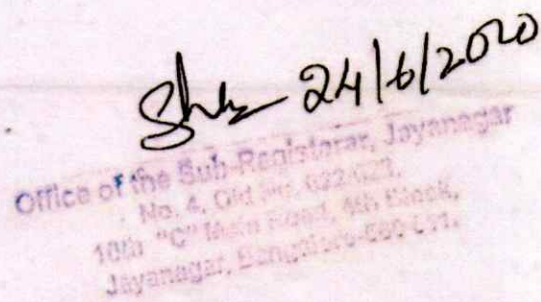 24/6/2020
Office of the Sub-Registerar, Jayanagar
No. 4, Old No. 622/023,
10th "C" Main Road, 4th Block,
Jayanagar, Bangalore-560 011.